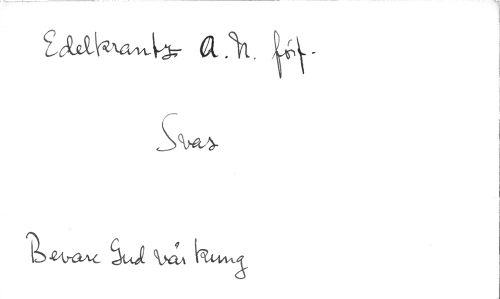 Edelkrantz A.N. förf.
Svar
Bevare Gud vår kung